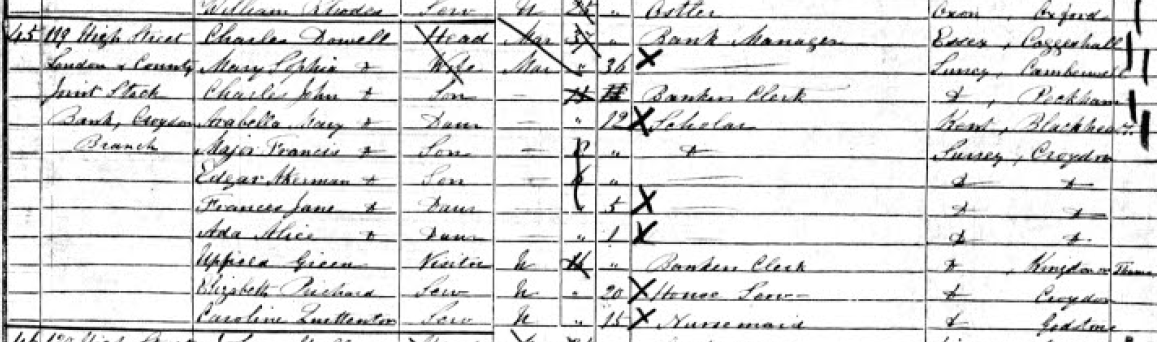 William Rhodes Serv U " Ostler Oxon, Oxford
45 119 High Street Charles Dowell Head Mar 37 " Bank Manager Essex, Coggeshall
London & County Mary Sophia do Wife Mar " 36 Surrey, Camberwell
Joint Stock Charles John do Son — Bankers Clerk do, Peckham
Bank, Croydon Arabella Mary do Daur — " 12 Scholar Kent, Blackheath
Branch Major Francis do Son — " do Surrey, Croydon
Edgar Akerman do Son — " — do do
Frances Jane do Daur — " 5 — do do
Ada Alice do Daur — " 1 — do do
Upfield Green Visitor U " Bankers Clerk do, Kingston on Thames
Elizabeth Prichard Serv U " 20 House Serv do Croydon
Caroline Quettenton Serv U " 15 Nursemaid do Godstone
46 120 High Street